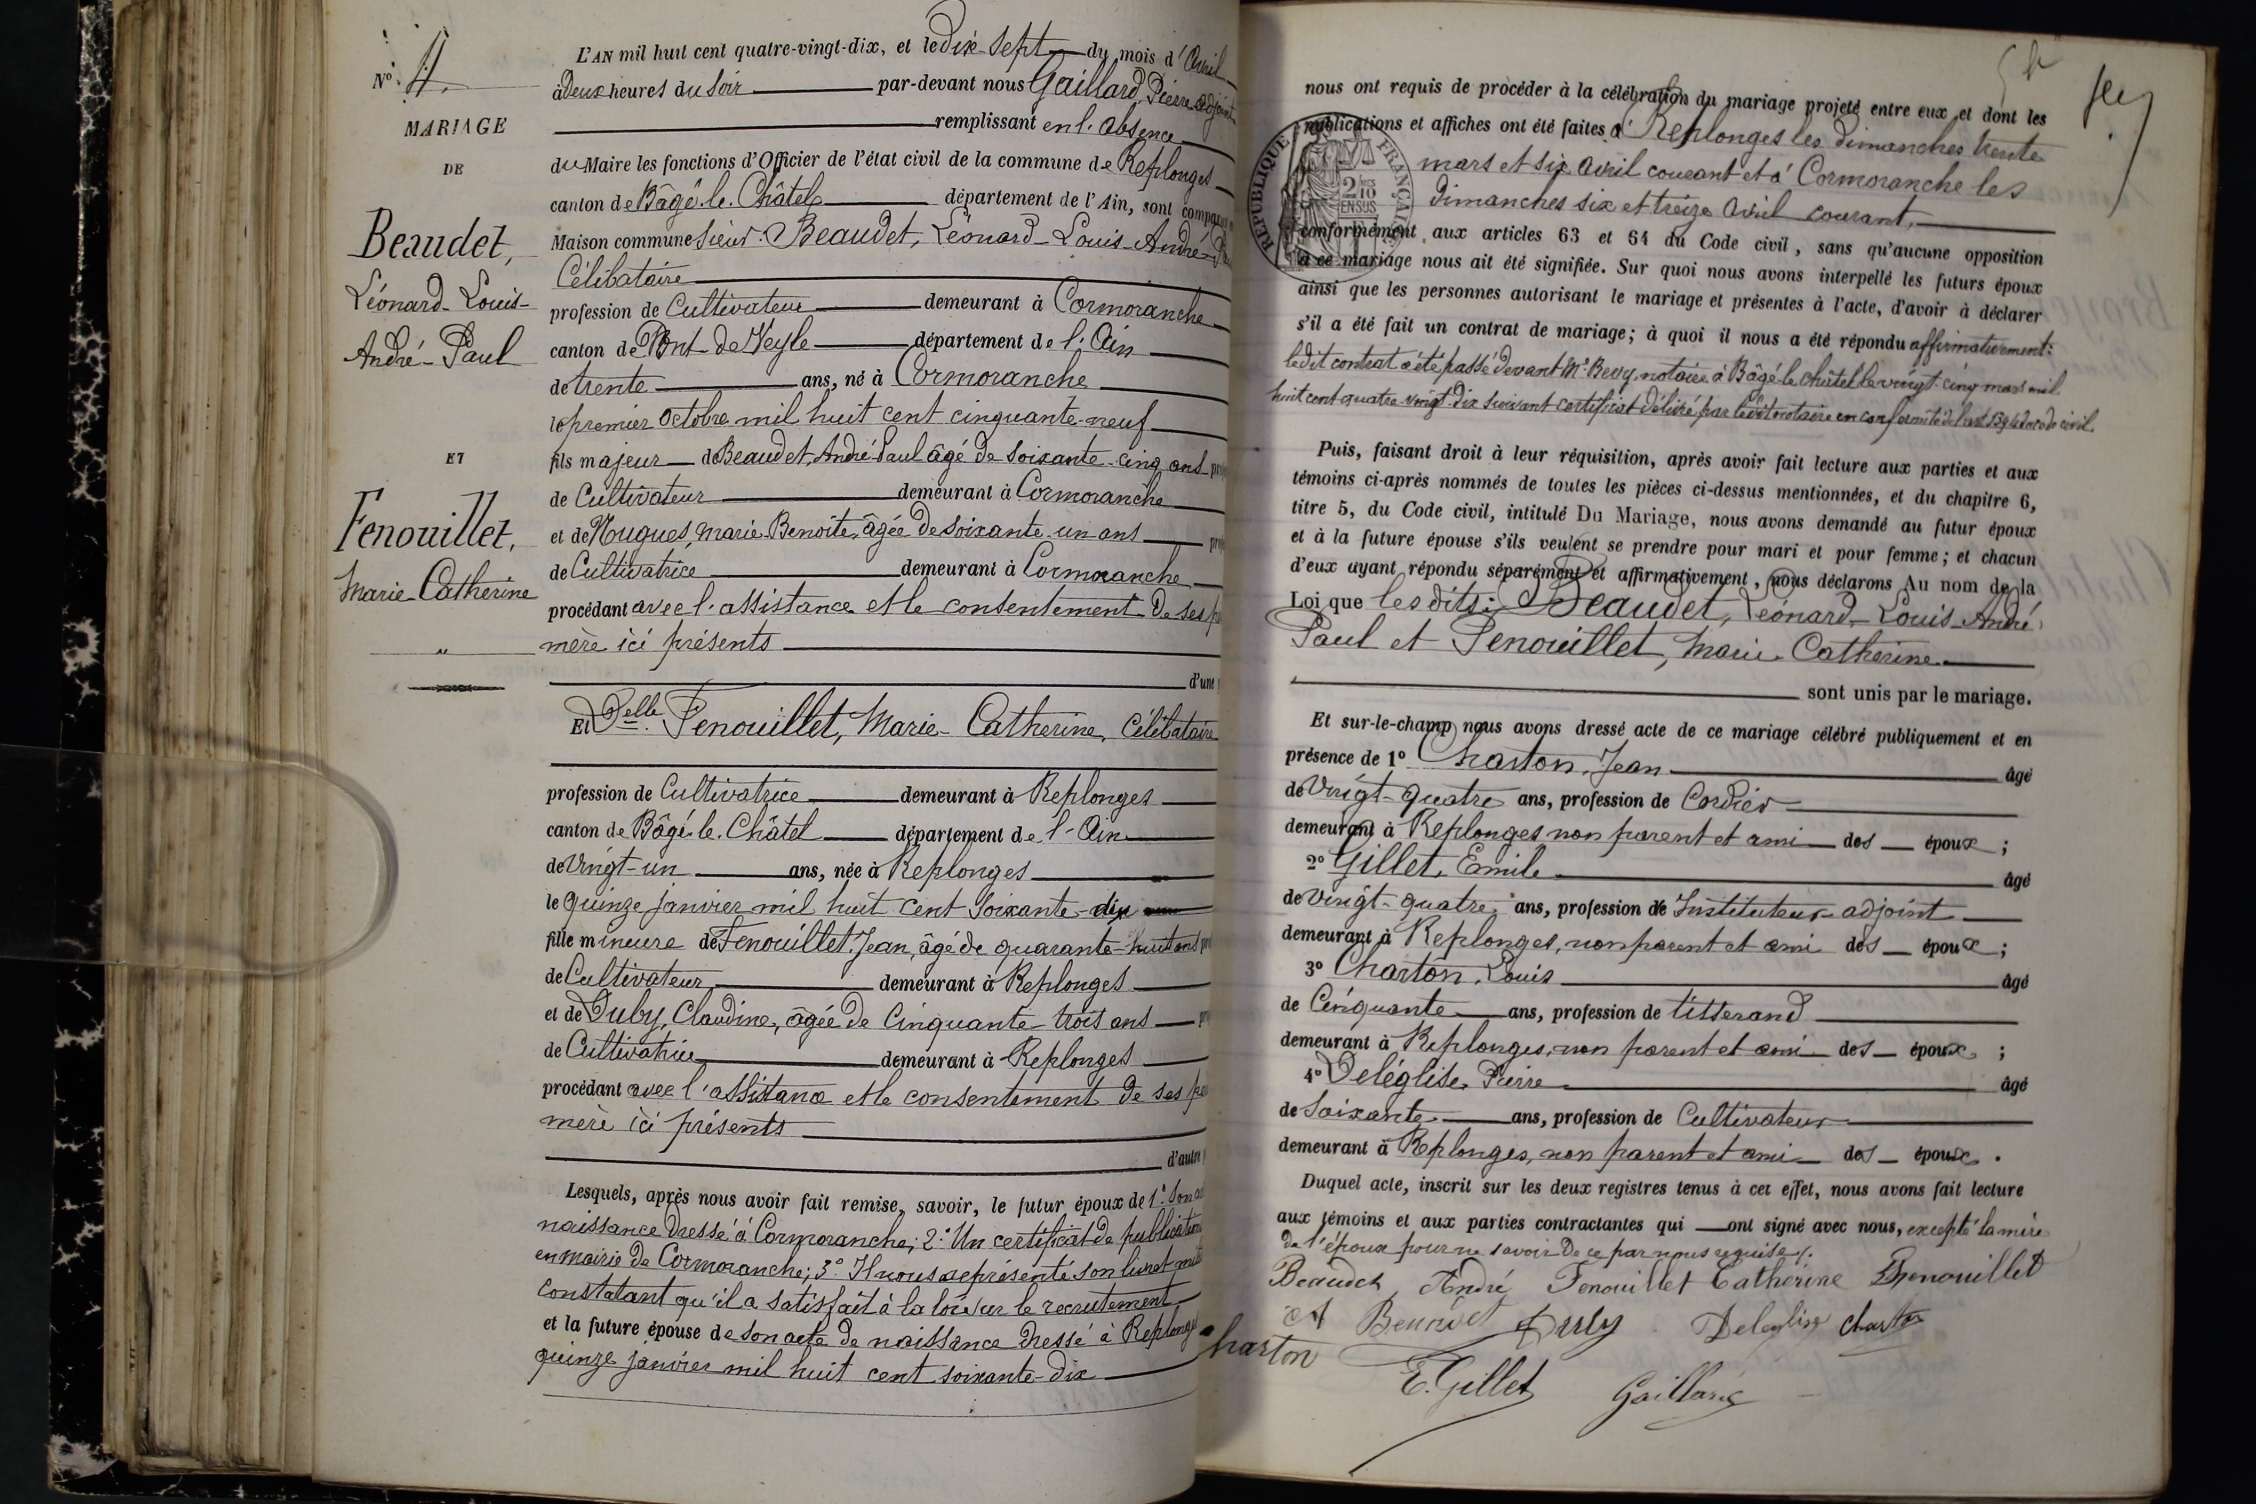 N° 4.
MARIAGE
DE
Beaudet,
Léonard-Louis-
André-Paul
ET
Fenouillet,
Marie Catherine
L'AN mil huit cent quatre-vingt-dix, et le Dix-Sept du mois d'Avril
à Deux heures du Soir par-devant nous Gaillard, Pierre adjoint
remplissant en l'absence
du Maire les fonctions d'Officier de l'état civil de la commune de Replonges
canton de Bâgé-le-Châtel département de l'Ain, sont comparus
Maison commune Sieur Beaudet, Léonard-Louis-André-
Célibataire
profession de Cultivateur demeurant à Cormoranche
canton de Pont-de-Veyle département de l'Ain
de trente ans, né à Cormoranche
le premier Octobre mil huit cent cinquante-neuf
fils majeur de Beaudet, André-Paul âgé de soixante-cinq ans
de Cultivateur demeurant à Cormoranche
et de Nugues, Marie-Benoite, âgée de soixante-un ans
de Cultivatrice demeurant à Cormoranche
procédant avec l'assistance et le consentement de ses
mère ici présents
d'une
Et Delle Fenouillet, Marie-Catherine, Célibataire
profession de Cultivatrice demeurant à Replonges
canton de Bâgé-le-Châtel département de l'Ain
de Vingt-un ans, née à Replonges
le quinze janvier mil huit cent soixante-dix
fille mineure de Fenouillet, Jean, âgé de quarante-huit ans
de Cultivateur demeurant à Replonges
et de Duby, Claudine, âgée de Cinquante-trois ans
de Cultivatrice demeurant à Replonges
procédant avec l'assistance et le consentement de ses
mère ici présents
d'autre
Lesquels, après nous avoir fait remise, savoir, le futur époux de 1° Son
naissance dressé à Cormoranche; 2° Un certificat de publication
en mairie de Cormoranche; 3° Il nous a représenté son livret
constatant qu'il a satisfait à la loi sur le recrutement
et la future épouse de son acte de naissance dressé à Replonges
quinze janvier mil huit cent soixante-dix
nous ont requis de procéder à la célébration du mariage projeté entre eux et dont les
publications et affiches ont été faites à Replonges les dimanches trente
mars et six avril courant et à Cormoranche les
dimanches six et treize Avril courant,
REPUBLIQUE FRANÇAISE
conformément aux articles 63 et 64 du Code civil, sans qu'aucune opposition
à ce mariage nous ait été signifiée. Sur quoi nous avons interpellé les futurs époux
ainsi que les personnes autorisant le mariage et présentes à l'acte, d'avoir à déclarer
s'il a été fait un contrat de mariage; à quoi il nous a été répondu affirmativement:
le dit contrat a été passé devant Me Bevy, notaire à Bâgé le Châtel le vingt-cinq mars mil
huit cent quatre-vingt-dix suivant certificat délivré par le dit notaire en conformité de l'art. 1394 du code civil.
Puis, faisant droit à leur réquisition, après avoir fait lecture aux parties et aux
témoins ci-après nommés de toutes les pièces ci-dessus mentionnées, et du chapitre 6,
titre 5, du Code civil, intitulé Du Mariage, nous avons demandé au futur époux
et à la future épouse s'ils veulent se prendre pour mari et pour femme; et chacun
d'eux ayant répondu séparément et affirmativement, nous déclarons Au nom de la
Loi que les dits: Beaudet, Léonard-Louis-André
Paul et Fenouillet, Marie-Catherine
sont unis par le mariage.
Et sur-le-champ nous avons dressé acte de ce mariage célébré publiquement et en
présence de 1° Charton, Jean âgé
de Vingt-quatre ans, profession de Cordier
demeurant à Replonges non parent et ami des époux;
2° Gillet, Emile âgé
de vingt-quatre ans, profession de Instituteur-adjoint
demeurant à Replonges, non parent et ami des époux;
3° Charton, Louis âgé
de Cinquante ans, profession de tisserand
demeurant à Replonges, non parent et ami des époux;
4° Deléglise, Pierre âgé
de Soixante ans, profession de Cultivateur
demeurant à Replonges, non parent et ami des époux.
Duquel acte, inscrit sur les deux registres tenus à cet effet, nous avons fait lecture
aux témoins et aux parties contractantes qui ont signé avec nous, excepté la mère
de l'époux pour ne savoir de ce par nous requise.
Beaudet André Fenouillet Catherine Fenouillet
Duby Deleglise Charton
Charton
E. Gillet Gaillard